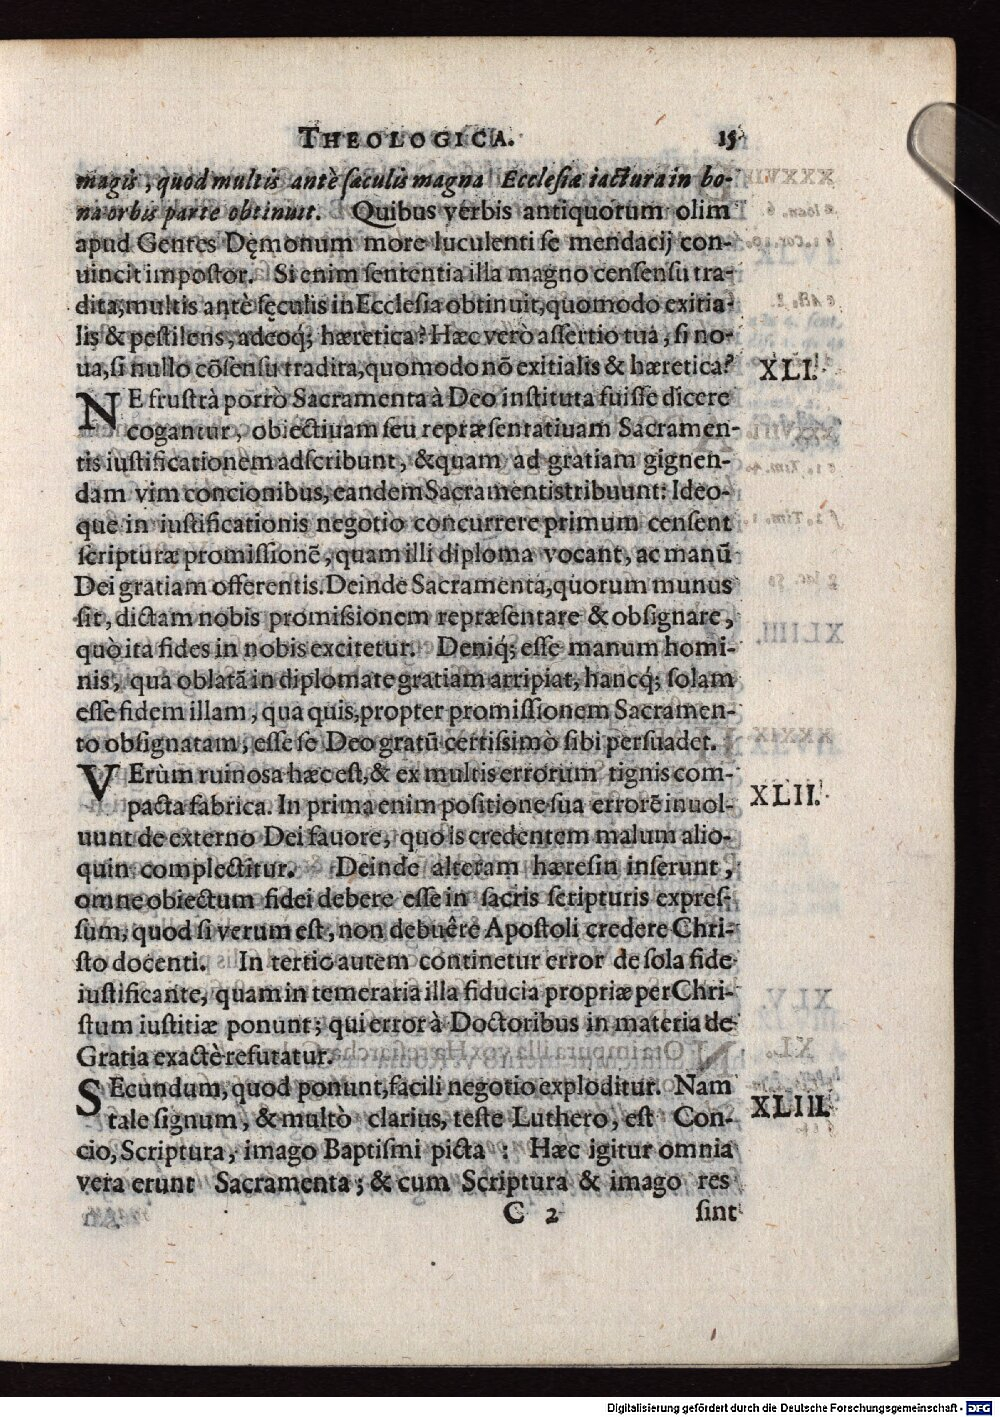 THEOLOGICA. 15
magis, quod multis antè sæculis magna Ecclesiæ iactura in bo-
na orbis parte obtinuit. Quibus verbis antiquorum olim
apud Gentes Dęmonum more luculenti se mendacij con-
uincit impostor. Si enim sententia illa magno censensu tra-
dita, multis antè sęculis in Ecclesia obtinuit, quomodo exitia-
lis & pestilens, adeoq́; hæretica? Hæc verò assertio tua, si no-
ua, si nullo cōsensu tradita, quomodo nō exitialis & hæretica?
XLI.
NE frustrà porrò Sacramenta à Deo instituta fuisse dicere
cogantur, obiectiuam seu repræsentatiuam Sacramen-
tis iustificationem adscribunt, & quam ad gratiam gignen-
dam vim concionibus, eandem Sacramentis tribuunt: Ideo-
que in iustificationis negotio concurrere primum censent
scripturæ promissionē, quam illi diploma vocant, ac manū
Dei gratiam offerentis. Deinde Sacramenta, quorum munus
sit, dictam nobis promissionem repræsentare & obsignare,
quò ita fides in nobis excitetur. Deniq́; esse manum homi-
nis, qua oblatā in diplomate gratiam arripiat, hancq́; solam
esse fidem illam, qua quis, propter promissionem Sacramen-
to obsignatam, esse se Deo gratū certissimò sibi persuadet.
VErùm ruinosa hæc est, & ex multis errorum tignis com-
pacta fabrica. In prima enim positione sua errorē inuol-
XLII.
uunt de externo Dei fauore, quo is credentem malum alio-
quin complectitur. Deinde alteram hæresin inserunt,
omne obiectum fidei debere esse in sacris scripturis expres-
sum, quod si verum est, non debuêre Apostoli credere Chri-
sto docenti. In tertio autem continetur error de sola fide
iustificante, quam in temeraria illa fiducia propriæ per Chri-
stum iustitiæ ponunt; qui error à Doctoribus in materia de
Gratia exactè refutatur.
SEcundum, quod ponunt, facili negotio exploditur. Nam
tale signum, & multò clarius, teste Luthero, est Con-
XLIII.
cio, Scriptura, imago Baptismi picta: Hæc igitur omnia
vera erunt Sacramenta; & cum Scriptura & imago res
C 2 sint
Digitalisierung gefördert durch die Deutsche Forschungsgemeinschaft - DFG